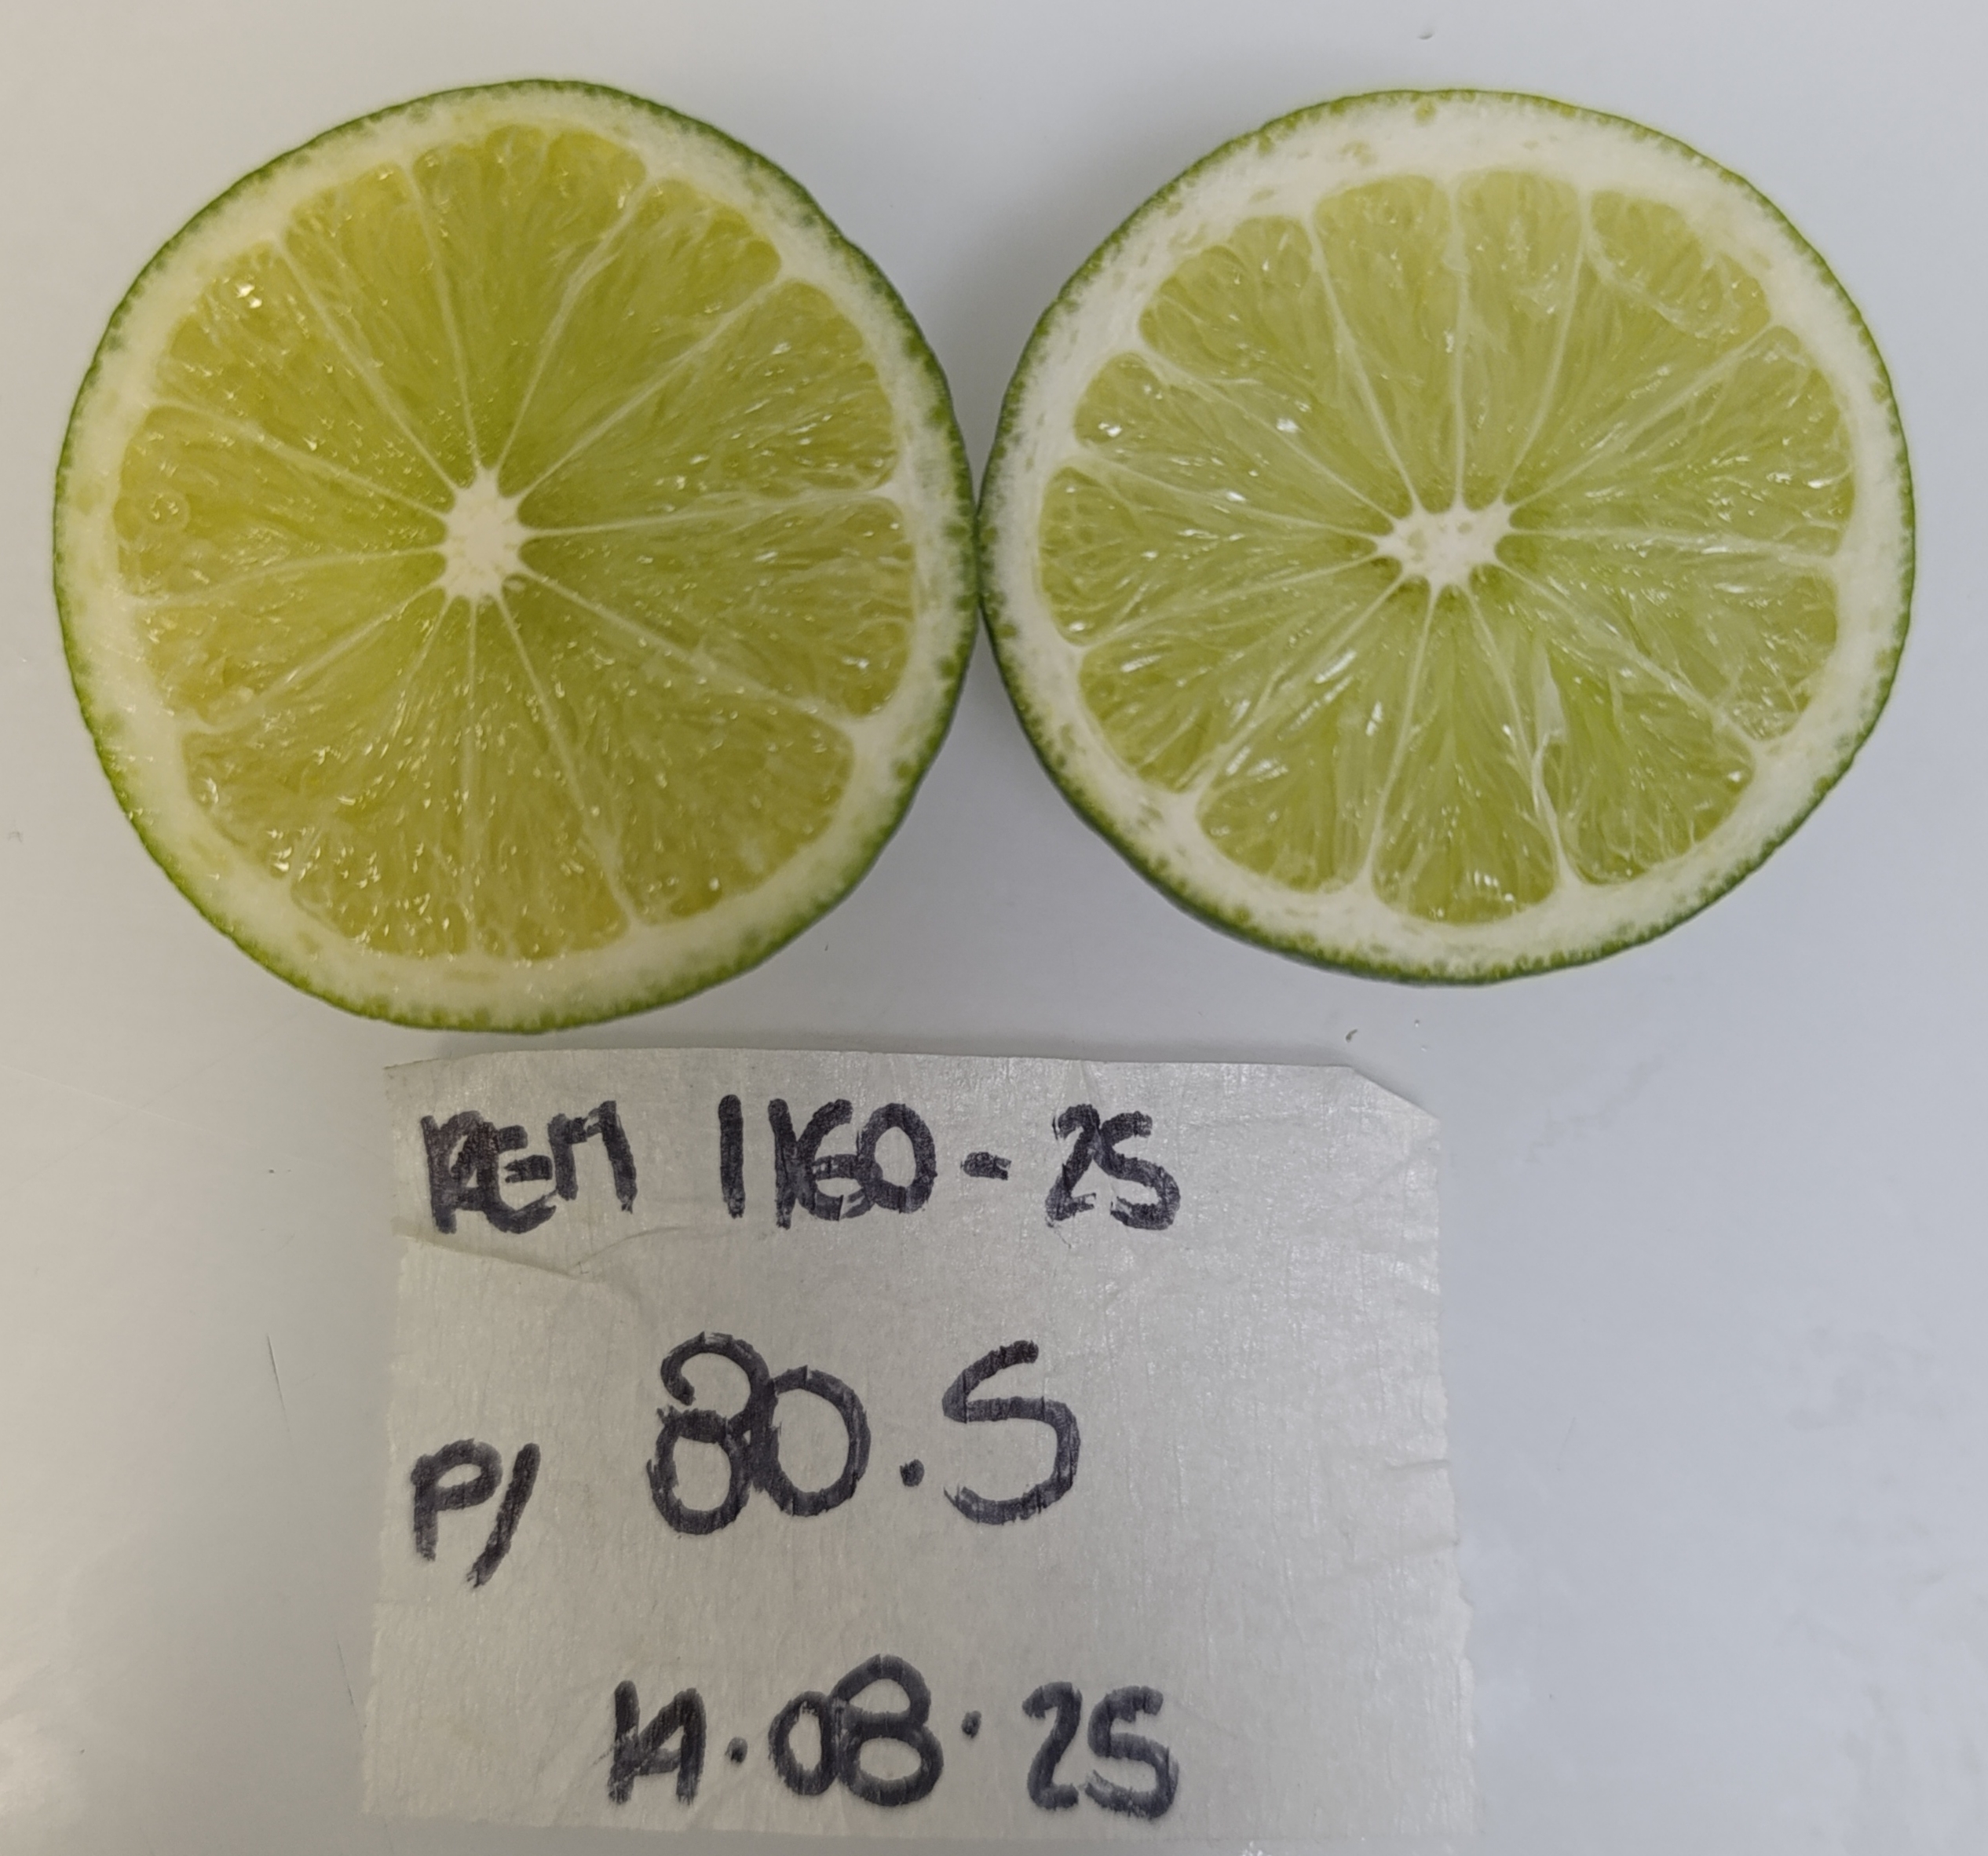 REM 1160-25
P/ 80.5
14.08.25